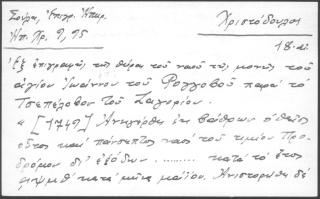 Σούρλα, Ἐπιγρ. Ἠπειρ.
Ἠπ. Χρ. 9, 95
Χριστόδουλος
18. αἰ.
Ἐξ ἐπιγραφῆς τῆς θύρας τοῦ ναοῦ τῆς μονῆς τοῦ
ἁγίου Ἰωάννου τοῦ Ρογγοβοῦ παρὰ τὸ
Τσεπέλοβον τοῦ Ζαγορίου.
« [1749] Ἀνηγέρθη ἐκ βάθρων ὁ θεῖος
οὗτος καὶ πάνσεπτος ναὸς τοῦ τιμίου Προ-
δρόμου δι' ἐξόδων ......... κατὰ τὸ ἔτος
͵αψμθʹ κατὰ μῆνα μαΐου. Ἀνιστορήθη δὲ